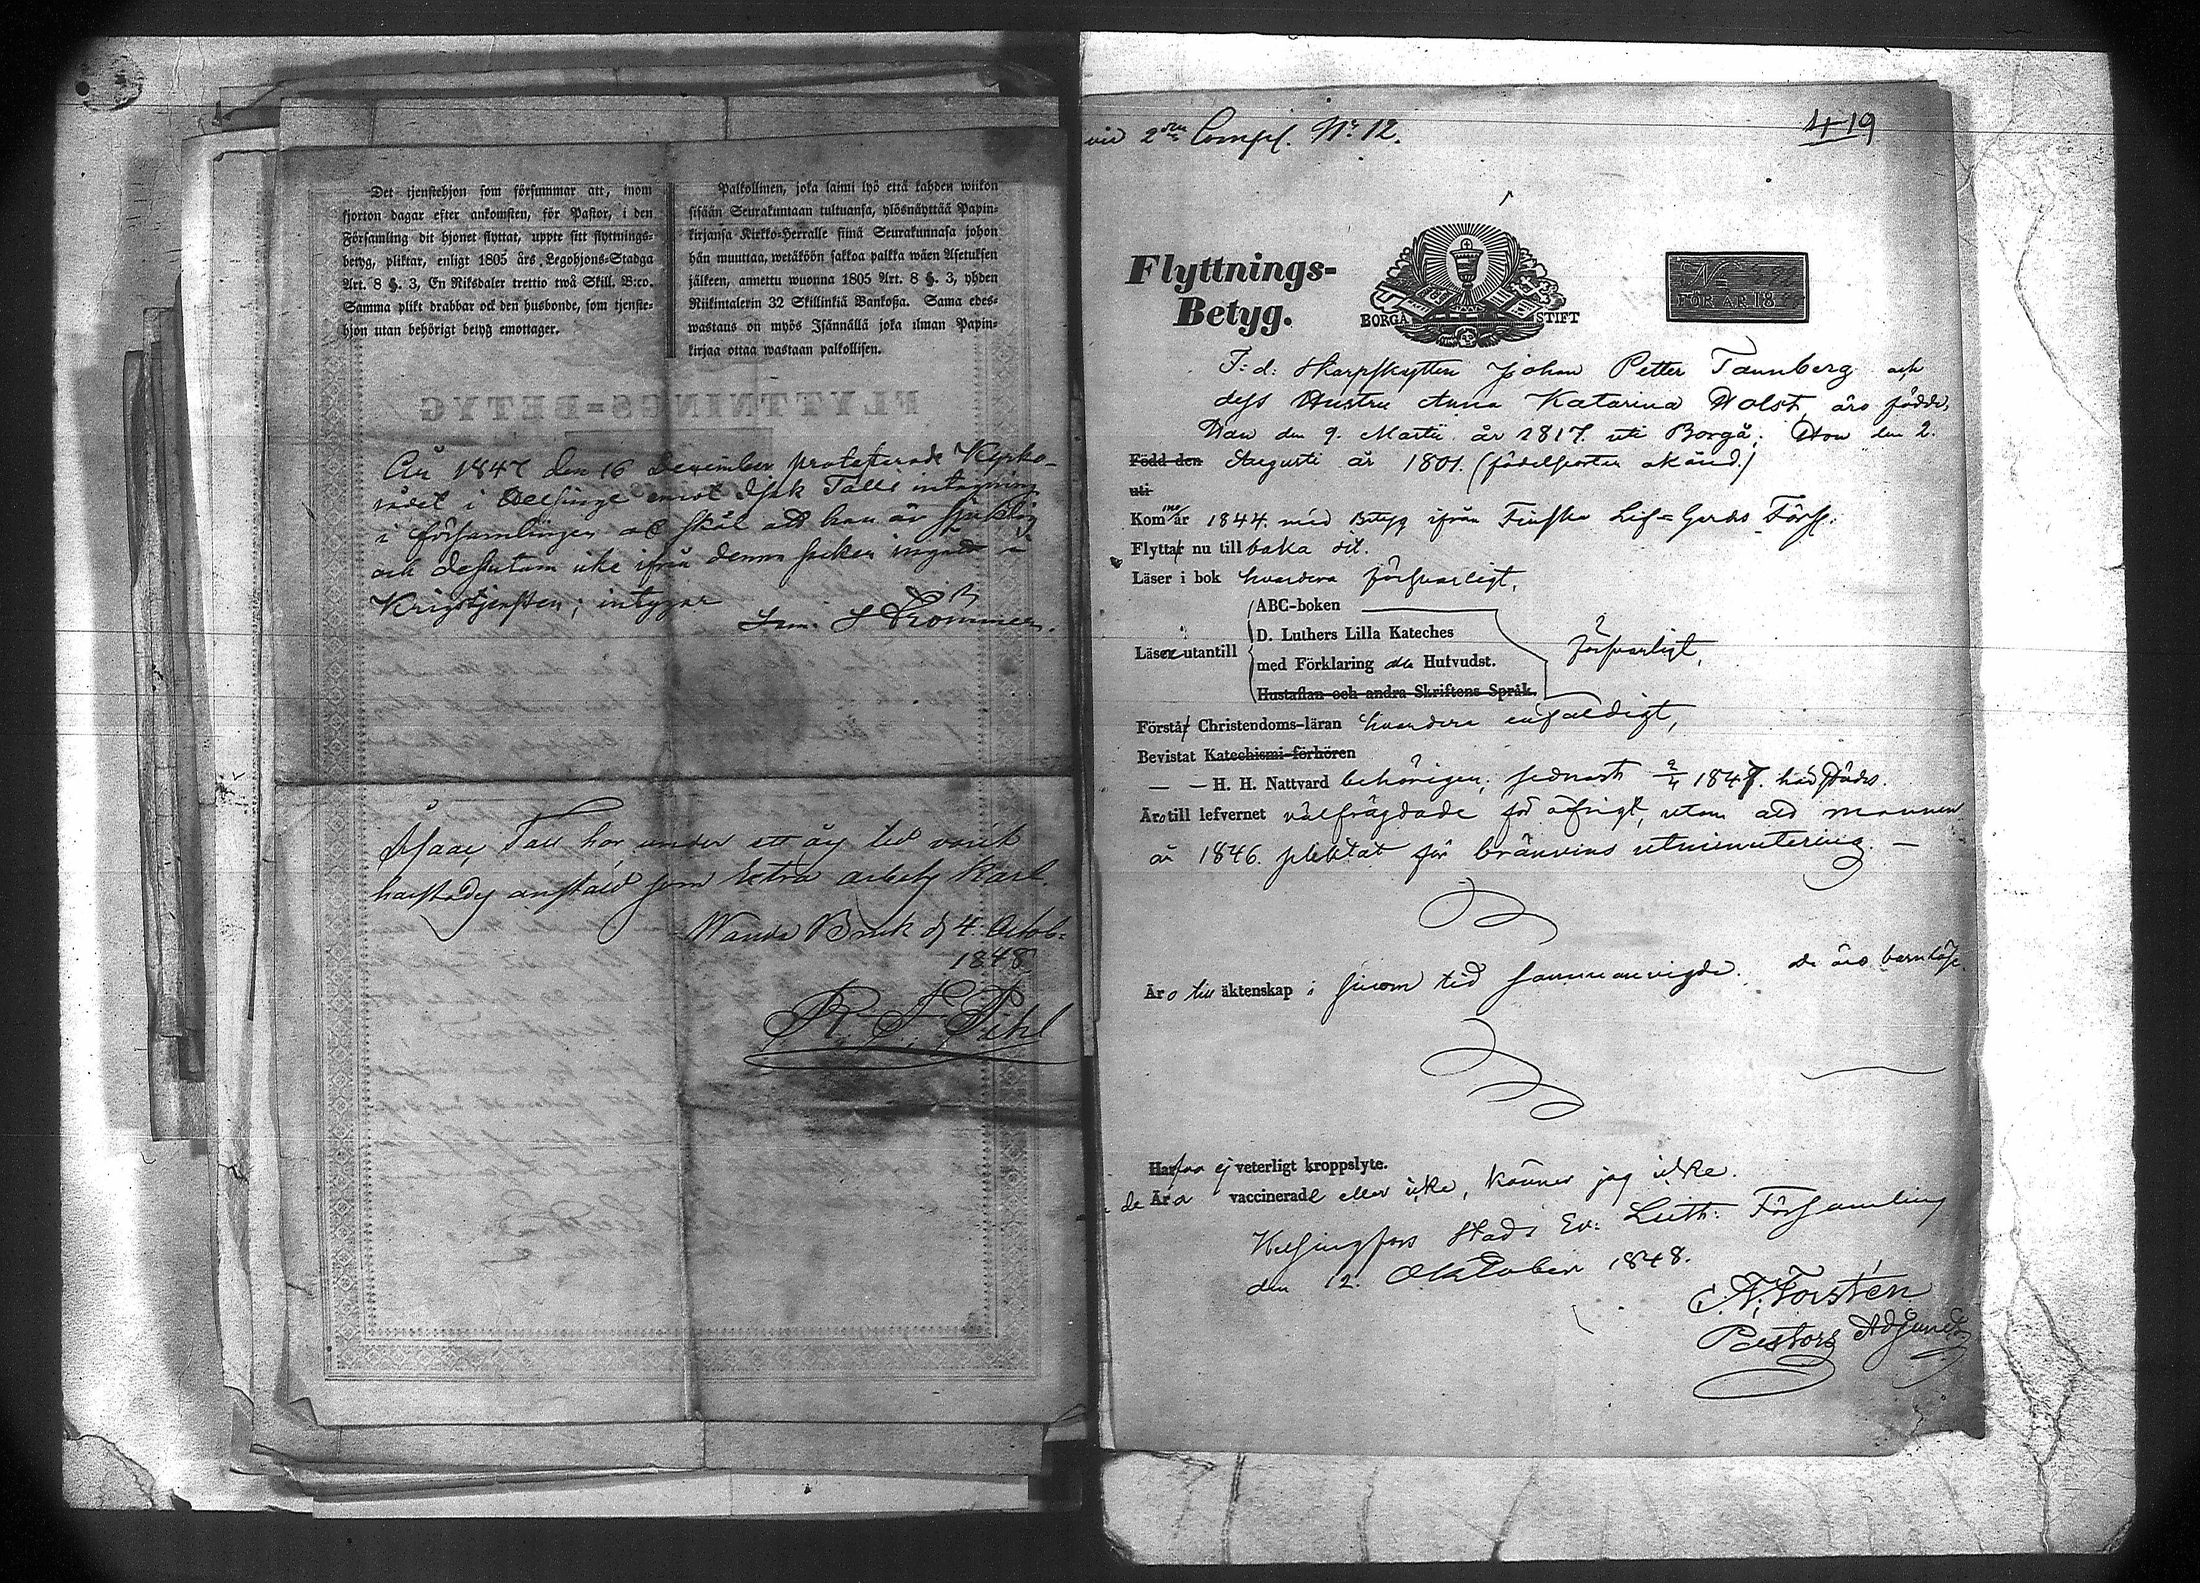 Det tjenstehjon som försummar att, inom
fjorton dagar efter ankomsten, för Pastor, i den
Församling dit hjonet flyttat, uppte sitt flyttnings-
betyg, pliktar, enligt 1805 års Legohjons-Stadga
Art. 8 §. 3, En Riksdaler trettio twå Skill. B:co.
Samma plikt drabbar ock den husbonde, som tjenste-
hjon utan behörigt betyg emottager.
Palkollinen, joka laimi lyö että kahden wiikon
sisään Seurakuntaan tultuansa, ylösnäyttää Papin-
kirjansa Kirkko-Herralle siinä Seurakunnasa johon
hän muuttaa, wetäköön sakkoa palkka wäen Asetuksen
jälkeen, annettu wuonna 1805 Art. 8 §. 3, yhden
Riikintalerin 32 Skillinkiä Bankosa. Sama edes-
wastaus on myös Isännällä joka ilman Papin-
kirjaa ottaa wastaan palkollisen.
FLYTTNINGS=BETYG
År 1847 den 16 December protesterade Kyrko-
rådet i Helsinge emot Isak Talls intagning
i församlingen af skäl att han är sjuklig
och dessutom icke ifrån denna socken ingått i
Krigstjensten; intygar
Isaac Tall har under ett års tid varit
härstädes anstäld som Extra arbets Karl.
Wanda Bruk d. 4 Octob:
1848
R. F. Pihl
vid 2dra Comp. No 12.
419
Flyttnings-
Betyg.
BORGÅ STIFT
No
FÖR ÅR 18
F: d: Skarpskytten Johan Petter Tannberg och
dess Hustru Anna Katarina Holst, äro födde,
Han den 9. Martii år 1817. uti Borgå; Hon den 2.
Född den Augusti år 1801. (födelseorten okänd.)
uti
Komne år 1844. med Betyg ifrån Finska Lif=Gardes Förs:
Flytta nu tillbaka dit.
Läser i bok hvardera försvarligt,
ABC-boken
D. Luthers Lilla Kateches
Läser utantill försvarligt,
med Förklaring Hufvudst.
Hustaflan och andra Skriftens Språk.
Förstå Christendoms-läran hvardera enfaldigt,
Bevistat Katechismi-förhören
— — H. H. Nattvard behörigen; sednast 2/4 1847. härstädes.
Äro till lefvernet välfrägdade för öfrigt, utom att mannen
år 1846. pliktat för bränvins utminutering. —
Äro till äktenskap i sinom tid sammanvigde. De äro barnlösa.
Hafva ej veterligt kroppslyte.
de Äro vaccinerade eller icke, känner jag icke.
Helsingfors Stads Ev: Luth: Församling
den 12. Oktober 1848.
A. Forstén
Pastors Adjunct